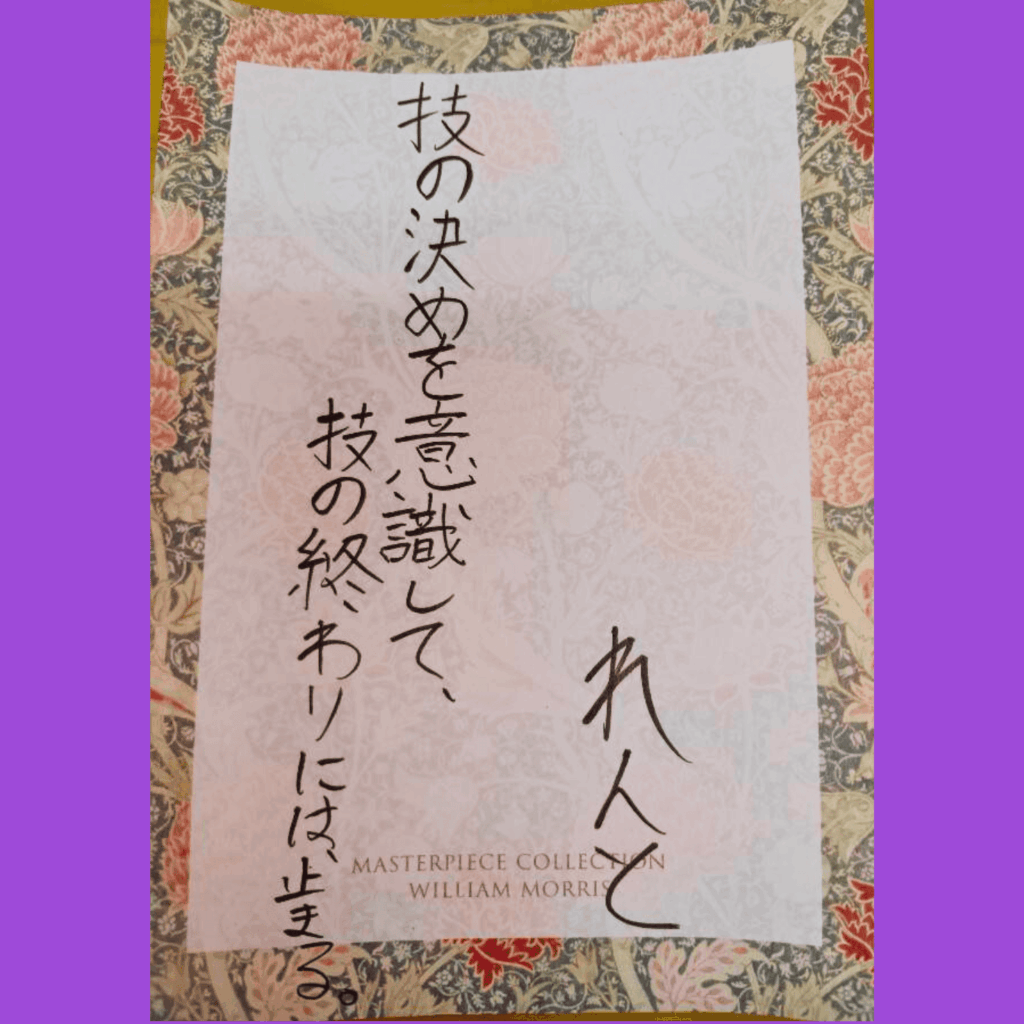 れんと
技の決めを意識して、
技の終わりには、止まる。
MASTERPIECE COLLECTION
WILLIAM MORRIS